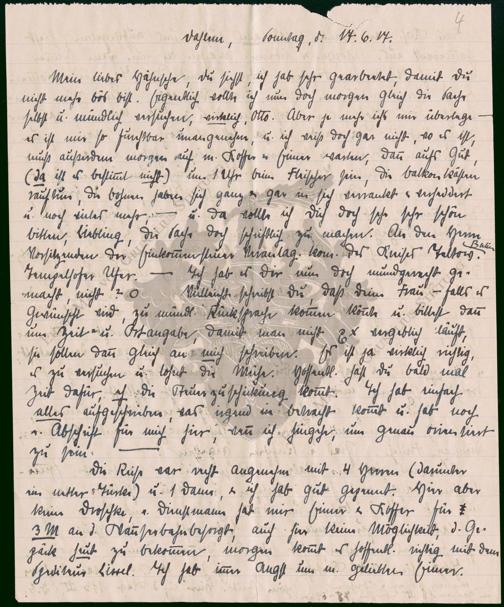 4
Dahlem, Sonntag, d. 17.6.17.
Mein lieber, du siehst, ich hab sehr gearbeitet damit du
nicht mehr bös bist. Eigentlich wollte ich nun doch morgen gleich die Sache
selbst u. mündlich versuchen, wirklich, Otto. Aber je mehr ichs mir überlege —
es ist mir so furchtbar unangenehm u. ich weiß doch gar nicht, wo es ist,
muß außerdem morgen auf m. Koffer u. Eimer warten, dann aufs Gut,
(da ist es bestimmt nicht) um 1 Uhr beim Fleischer sein, die Balkonkästen
die Bohnen haben sich ganz u. gar in sich verrankt u.
u. noch vieles mehr — u. da wollte ich dich doch sehr sehr schön
bitten, Liebling, die Sache doch schriftlich zu machen. An den Herrn
Vorsitzenden der Einkommensteuer Veranlag. Kom. des Kreises Teltow. Berlin
Tempelhofer Ufer. — Ich hab es dir nun doch mundgerecht ge-
macht nicht?
Vielleicht schreibst du, daß deine Frau — falls es
gewünscht wird, zu mündl. Rücksprache kommen könnte u. bittest dann
um Zeit u. Ortangabe, damit man nicht 2 x vergeblich läuft,
sie sollen dann gleich an mich schreiben. Es ist ja wirklich richtig,
es zu versuchen u. lohnt die Mühe. Hoffentl. hast du bald mal
Zeit dafür, eh die Steuerzuschickung kommt. Ich hab einfach
alles aufgeschrieben was irgend in Betracht kommt u. hab noch
e. Abschrift für mich hier, wenn ich hingehe, um genau orientiert
zu sein.
Die Reise war recht angenehm mit 4 Herren (darunter
ein netter Türke) u. 1 Dame, u. ich hab gut gegessen. Hier aber
keine Droschke u. Dienstmann hat mir Eimer u. Koffer für
3 M an d. auch hier keine Möglichkeit d. Ge-
päck heut zu bekommen, morgen kommt es hoffentl. richtig mit dem
Spediteur. Ich hab immer Angst um m. geliebten Eimer.